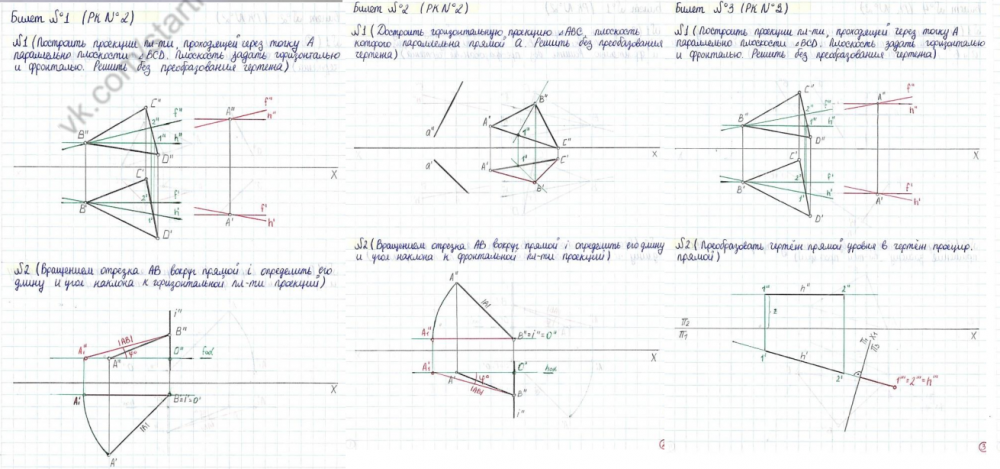 Билет №1 (РК №2)
№1 (Построить проекции пл-ти, проходящей через точку A
параллельно плоскости △BCD. Плоскость задать горизонталью
и фронталью. Решить без преобразования чертежа)
C"
f"
2"
1"
h"
B"
D"
f"
A"
h"
X
C'
f'
2'
B'
h'
1'
D'
f'
A'
h'
№2 (Вращением отрезка AB вокруг прямой i определить его
длину и угол наклона к горизонтальной пл-ти проекций)
i"
B"
|AB|
φ°
A₁"
A"
O"
X
A₁'
B'≡i'≡O'
|A|
A'
Билет №2 (РК №2)
№1 (Достроить горизонтальную проекцию △ABC, плоскость
которого параллельна прямой a. Решить без преобразования
чертежа)
a"
B"
A"
1"
C"
X
a'
A'
1'
C'
B'
№2 (Вращением отрезка AB вокруг прямой i определить его длину
и угол наклона к фронтальной пл-ти проекций)
A"
|A|
A₁"
B"≡i"≡O"
X
A₁'
A'
φ°
O'
|AB|
B"
i"
Билет №3 (РК №2)
№1 (Построить проекции пл-ти, проходящей через точку A
параллельно плоскости △BCD. Плоскость задать горизонталью
и фронталью. Решить без преобразования чертежа)
C"
f"
2"
1"
h"
B"
D"
f"
A"
h"
X
C'
B'
2'
f'
1'
h'
D'
f'
A'
h'
№2 (Преобразовать чертёж прямой уровня в чертёж проецир.
прямой)
1"
h"
2"
П₂
П₁
X
1'
h'
2'
1'''≡2'''≡h'''
3
vk.com/start